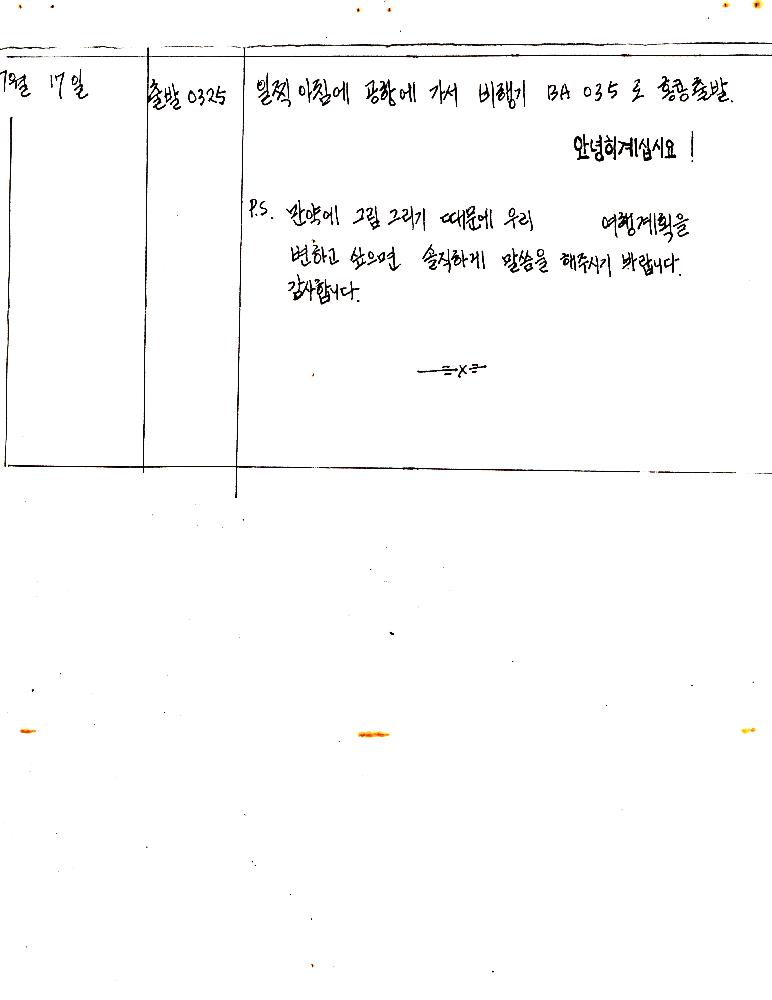 7월 17일 출발 0325 일찍 아침에 공항에 가서 비행기 BA 035 로 홍콩출발.
안녕히계십시요!
P.S. 만약에 그림 그리기 때문에 우리 여행계획을
변하고 싶으면 솔직하게 말씀을 해주시기 바랍니다.
감사합니다.